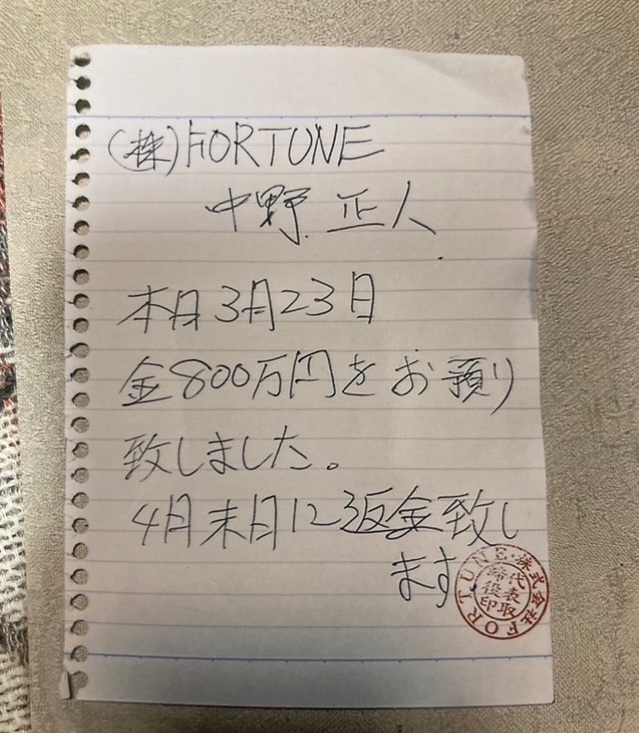 (株)FORTUNE
中野 正人
本日3月23日
金800万円をお預り
致しました。
4月末日に返金致し
ます
株式会社FORTUNE
代表取締役印